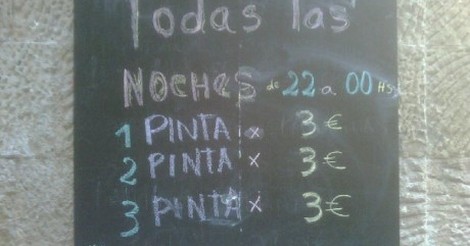 Todas las
NOCHES de 22 a 00 Hs.
1 PINTA x 3€
2 PINTA x 3€
3 PINTA x 3€